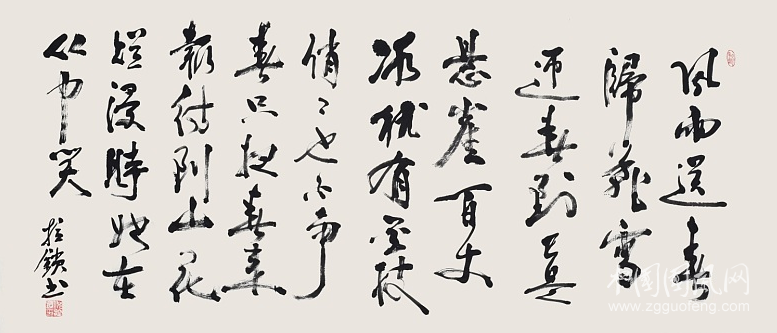 風雨送春
歸飛雪
迎春到已是
悬崖百丈
冰犹有花枝
俏〻也不争
春只把春来
報待到山花
烂漫時她在
丛中笑
拴锁书
中国国风网
www.zgguofeng.com